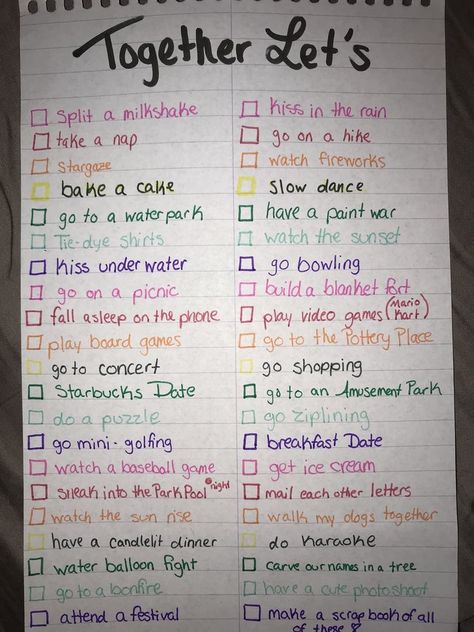 Together Let's
split a milkshake
take a nap
stargaze
bake a cake
go to a waterpark
Tie-dye shirts
kiss under water
go on a picnic
fall asleep on the phone
play board games
go to concert
Starbucks Date
do a puzzle
go mini-golfing
watch a baseball game
sneak into the Park Pool @ night
watch the sun rise
have a candlelit dinner
water balloon fight
go to a bonfire
attend a festival
kiss in the rain
go on a hike
watch fireworks
slow dance
have a paint war
watch the sunset
go bowling
build a blanket fort
play video games (Mario Kart)
go to the Pottery Place
go shopping
go to an Amusement Park
go ziplining
breakfast Date
get ice cream
mail each other letters
walk my dogs together
do karaoke
carve our names in a tree
have a cute photoshoot
make a scrapbook of all
of these